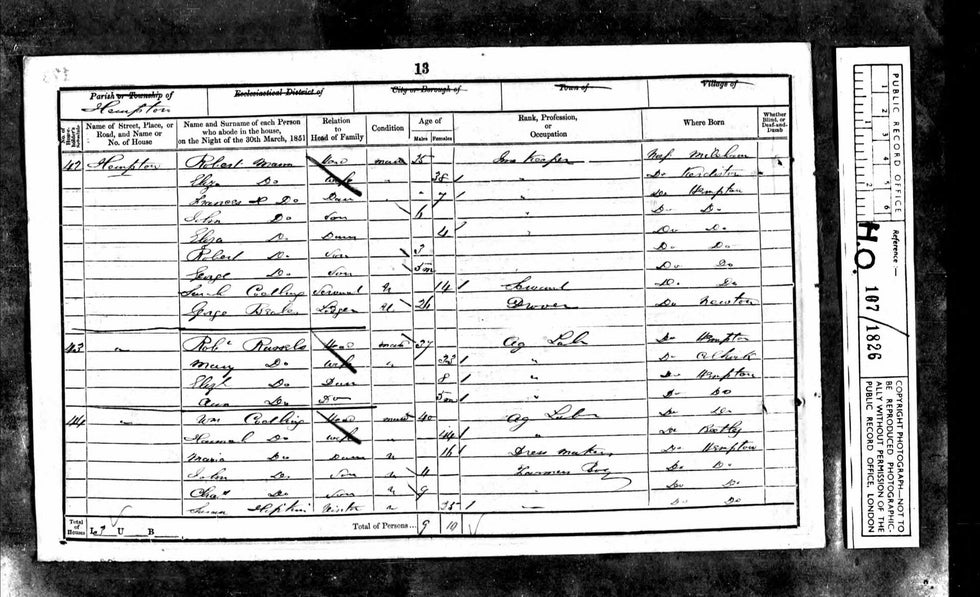 13
Parish or Township of
Ecclesiastical District of
City or Borough of
Town of
Village of
Hempton
Name of Street, Place, or Road, and Name or No. of House
Name and Surname of each Person who abode in the house, on the Night of the 30th March, 1851
Relation to Head of Family
Condition
Age of
Males
Females
Rank, Profession, or Occupation
Where Born
Whether Blind, or Deaf-and-Dumb
42 Hempton Robert Mann Head 35 Inn Keeper Norf
Eliza Do Wife 38 Do
Frances Do Daur 7 Do Hempton
John Do Son 6 Do Do
Eliza Do Daur 4 Do Do
Robert Do Son 3 Do Do
George Do Son 5m Do Do
Sarah Codling Servant U 14 Servant Do Do
George Lodger U 26 Drover Do Newton
43 Robt Russels Head 37 Ag Lab Do Hempton
Mary Do Wife 33 Do
Do Daur 8 Do Hempton
Ann Do Daur 5m Do Do
44 Wm Codling Head 40 Ag Lab Do Do
Hannah Do Wife 44 Do
Maria Do Daur U 16 Dress maker Do Hempton
John Do Son U 11 Farmers Boy Do Do
Chas Do Son U 9 Do Do
35 Do Do
Total of Houses
U
B
Total of Persons
9
10
PUBLIC RECORD OFFICE
1
2
3
4
5
6
Reference :-
H.O. 107/1826
COPYRIGHT PHOTOGRAPH—NOT TO BE REPRODUCED PHOTOGRAPHICALLY WITHOUT PERMISSION OF THE PUBLIC RECORD OFFICE, LONDON